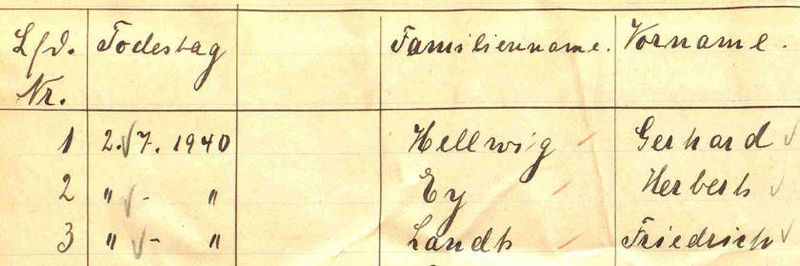 Lfd. Todestag Familienname. Vorname.
Nr.
1 2.√7. 1940 Hellwig Gerhard √
2 " √- " Ey Herbert √
3 " √- " Landt Friedrich √